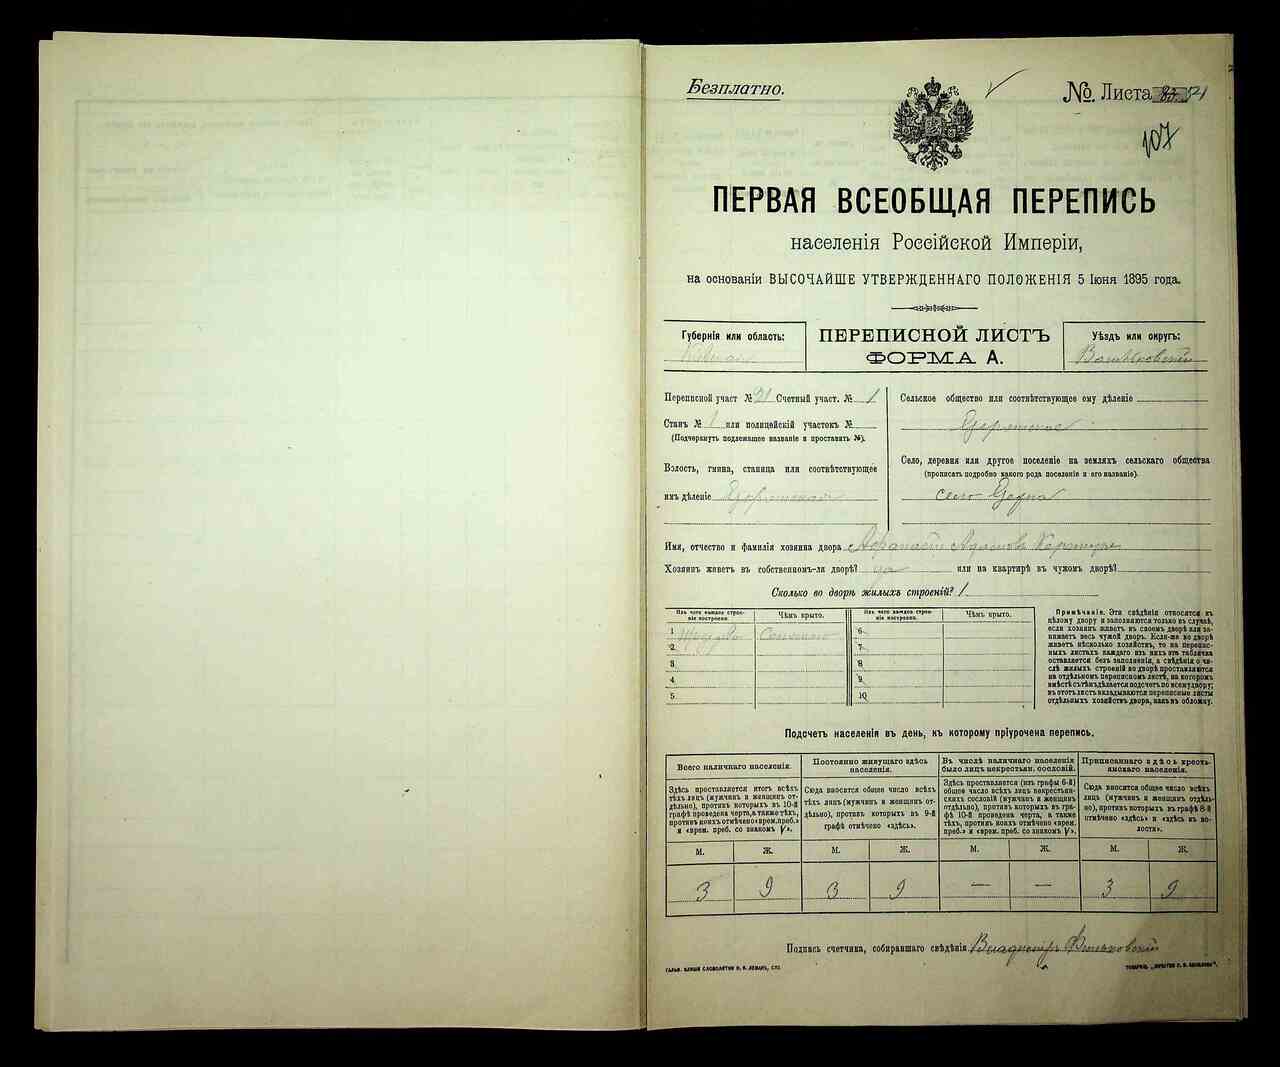 Безплатно.
№ Листа
107
ПЕРВАЯ ВСЕОБЩАЯ ПЕРЕПИСЬ
населенія Россійской Имперіи,
на основаніи ВЫСОЧАЙШЕ УТВЕРЖДЕННАГО ПОЛОЖЕНІЯ 5 Іюня 1895 года.
Губернія или область:
Кіевская
ПЕРЕПИСНОЙ ЛИСТЪ
ФОРМА А.
Уѣздъ или округъ:
Васильковскій
Переписной участ № 21 Счетный участ. № 1
Станъ № 1 или полицейскій участокъ №
(Подчеркнуть подлежащее названіе и проставить №).
Волость, гмина, станица или соотвѣтствующее
имъ дѣленіе
Сельское общество или соотвѣтствующее ему дѣленіе
Село, деревня или другое поселеніе на земляхъ сельскаго общества
(прописать подробно какого рода поселеніе и его названіе).
село
Имя, отчество и фамилія хозяина двора Афанасій
Хозяинъ живетъ въ собственномъ-ли дворѣ? да или на квартирѣ въ чужомъ дворѣ?
Сколько во дворѣ жилыхъ строеній? 1.
Изъ чего каждое строеніе построено.
Чѣмъ крыто.
Изъ чего каждое строеніе построено.
Чѣмъ крыто.
1 Соломою 6
2. 7.
3. 8
4. 9.
5. 10.
Примѣчаніе. Эти свѣдѣнія относятся къ
цѣлому двору и заполняются только въ случаѣ,
если хозяинъ живетъ въ своемъ дворѣ или за-
нимаетъ весь чужой дворъ. Если-же во дворѣ
живетъ нѣсколько хозяйствъ, то на перепис-
ныхъ листахъ каждаго изъ нихъ эта табличка
оставляется безъ заполненія, а свѣдѣнія о чи-
слѣ жилыхъ строеній во дворѣ проставляются
на отдѣльномъ переписномъ листѣ, на которомъ
вмѣстѣ съ тѣмъ дѣлается подсчетъ по всему двору;
въ этотъ листъ вкладываются переписные листы
отдѣльныхъ хозяйствъ двора, какъ въ обложку.
Подсчетъ населенія въ день, къ которому пріурочена перепись.
Всего наличнаго населенія.
Здѣсь проставляется итогъ всѣхъ
тѣхъ лицъ (мужчинъ и женщинъ от-
дѣльно), противъ которыхъ въ 10-й
графѣ проведена черта, а также тѣхъ,
противъ коихъ отмѣчено «врем. преб.»
и «врем. преб. со знакомъ V».
Постоянно живущаго здѣсь
населенія.
Сюда вносится общее число всѣхъ
тѣхъ лицъ (мужчинъ и женщинъ от-
дѣльно), противъ которыхъ въ 9-й
графѣ отмѣчено «здѣсь».
Въ числѣ наличнаго населенія
было лицъ некрестьян. сословій.
Здѣсь проставляется (изъ графы 6-й)
общее число всѣхъ лицъ некрестьян-
скихъ сословій (мужчинъ и женщинъ
отдѣльно), противъ которыхъ въ гра-
фѣ 10-й проведена черта, а также
тѣхъ, противъ коихъ отмѣчено «врем.
преб.» и «врем. преб. со знакомъ V».
Приписаннаго здѣсь кресть-
янскаго населенія.
Сюда вносится общее число всѣхъ
лицъ (мужчинъ и женщинъ отдѣль-
но), противъ которыхъ въ графѣ 8-й
отмѣчено «здѣсь» и «здѣсь въ во-
лости».
М. Ж. М. Ж. М. Ж. М. Ж.
3 9 3 9 — — 3 9
Подпись счетчика, собиравшаго свѣдѣнія